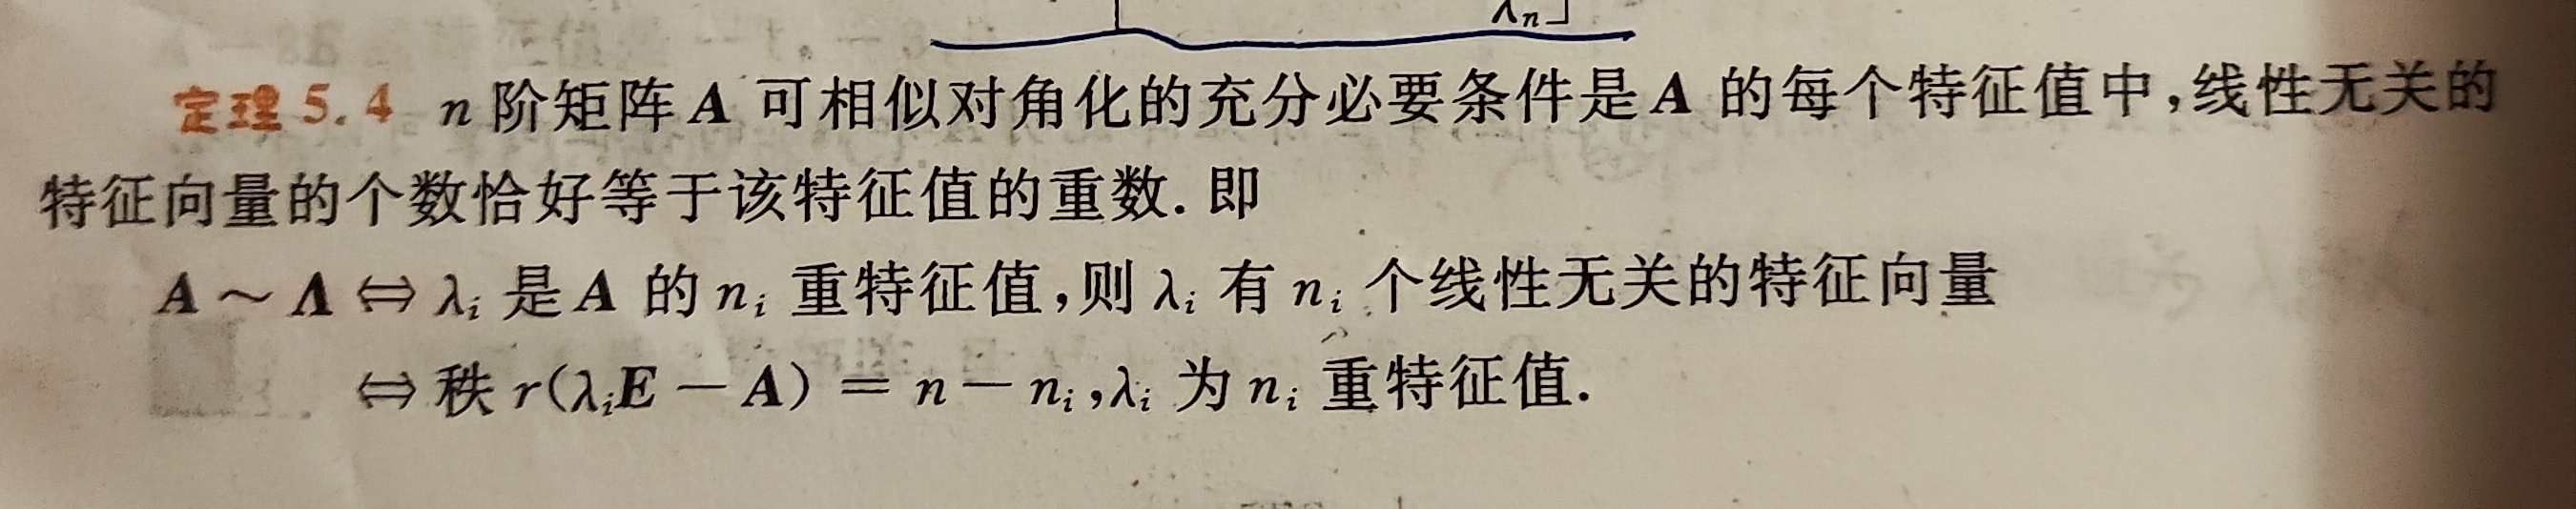 λₙ
定理 5.4 n 阶矩阵 A 可相似对角化的充分必要条件是 A 的每个特征值中,线性无关的
特征向量的个数恰好等于该特征值的重数. 即
A ~ Λ ⇔ λᵢ 是 A 的 nᵢ 重特征值,则 λᵢ 有 nᵢ 个线性无关的特征向量
⇔ 秩 r(λᵢE － A) = n － nᵢ,λᵢ 为 nᵢ 重特征值.